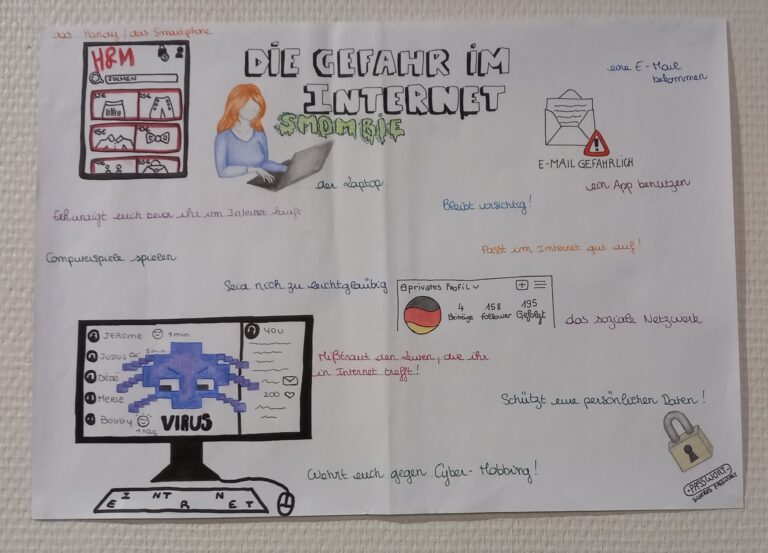 das Handy / das Smartphone
H&M
SUCHEN
15€
10€
DIE GEFAHR IM
INTERNET
SMOMBIE
eine E-Mail
bekommen
E-MAIL GEFÄHRLICH
der Laptop
ein App benutzen
Erkundigt euch bevor ihr im Internet kauft
Bleibt vorsichtig!
Passt im Internet gut auf!
Computerspiele spielen
Seid nich zu leichtgläubig
privates Profil
4 158 195
Beiträge Follower Gefolgt
das soziale Netzwerk
JEROME 1 min
JULIUS OK 3 min
DÉDÉ
MERLE
Bobby
1 TAG
VIRUS
YOU
200
Mißtraut den Leuten, die ihr
in Internet trefft!
Schützt eure persönlichen Daten!
Wehrt euch gegen Cyber-Mobbing!
PASSWORT
E I NT R N ET